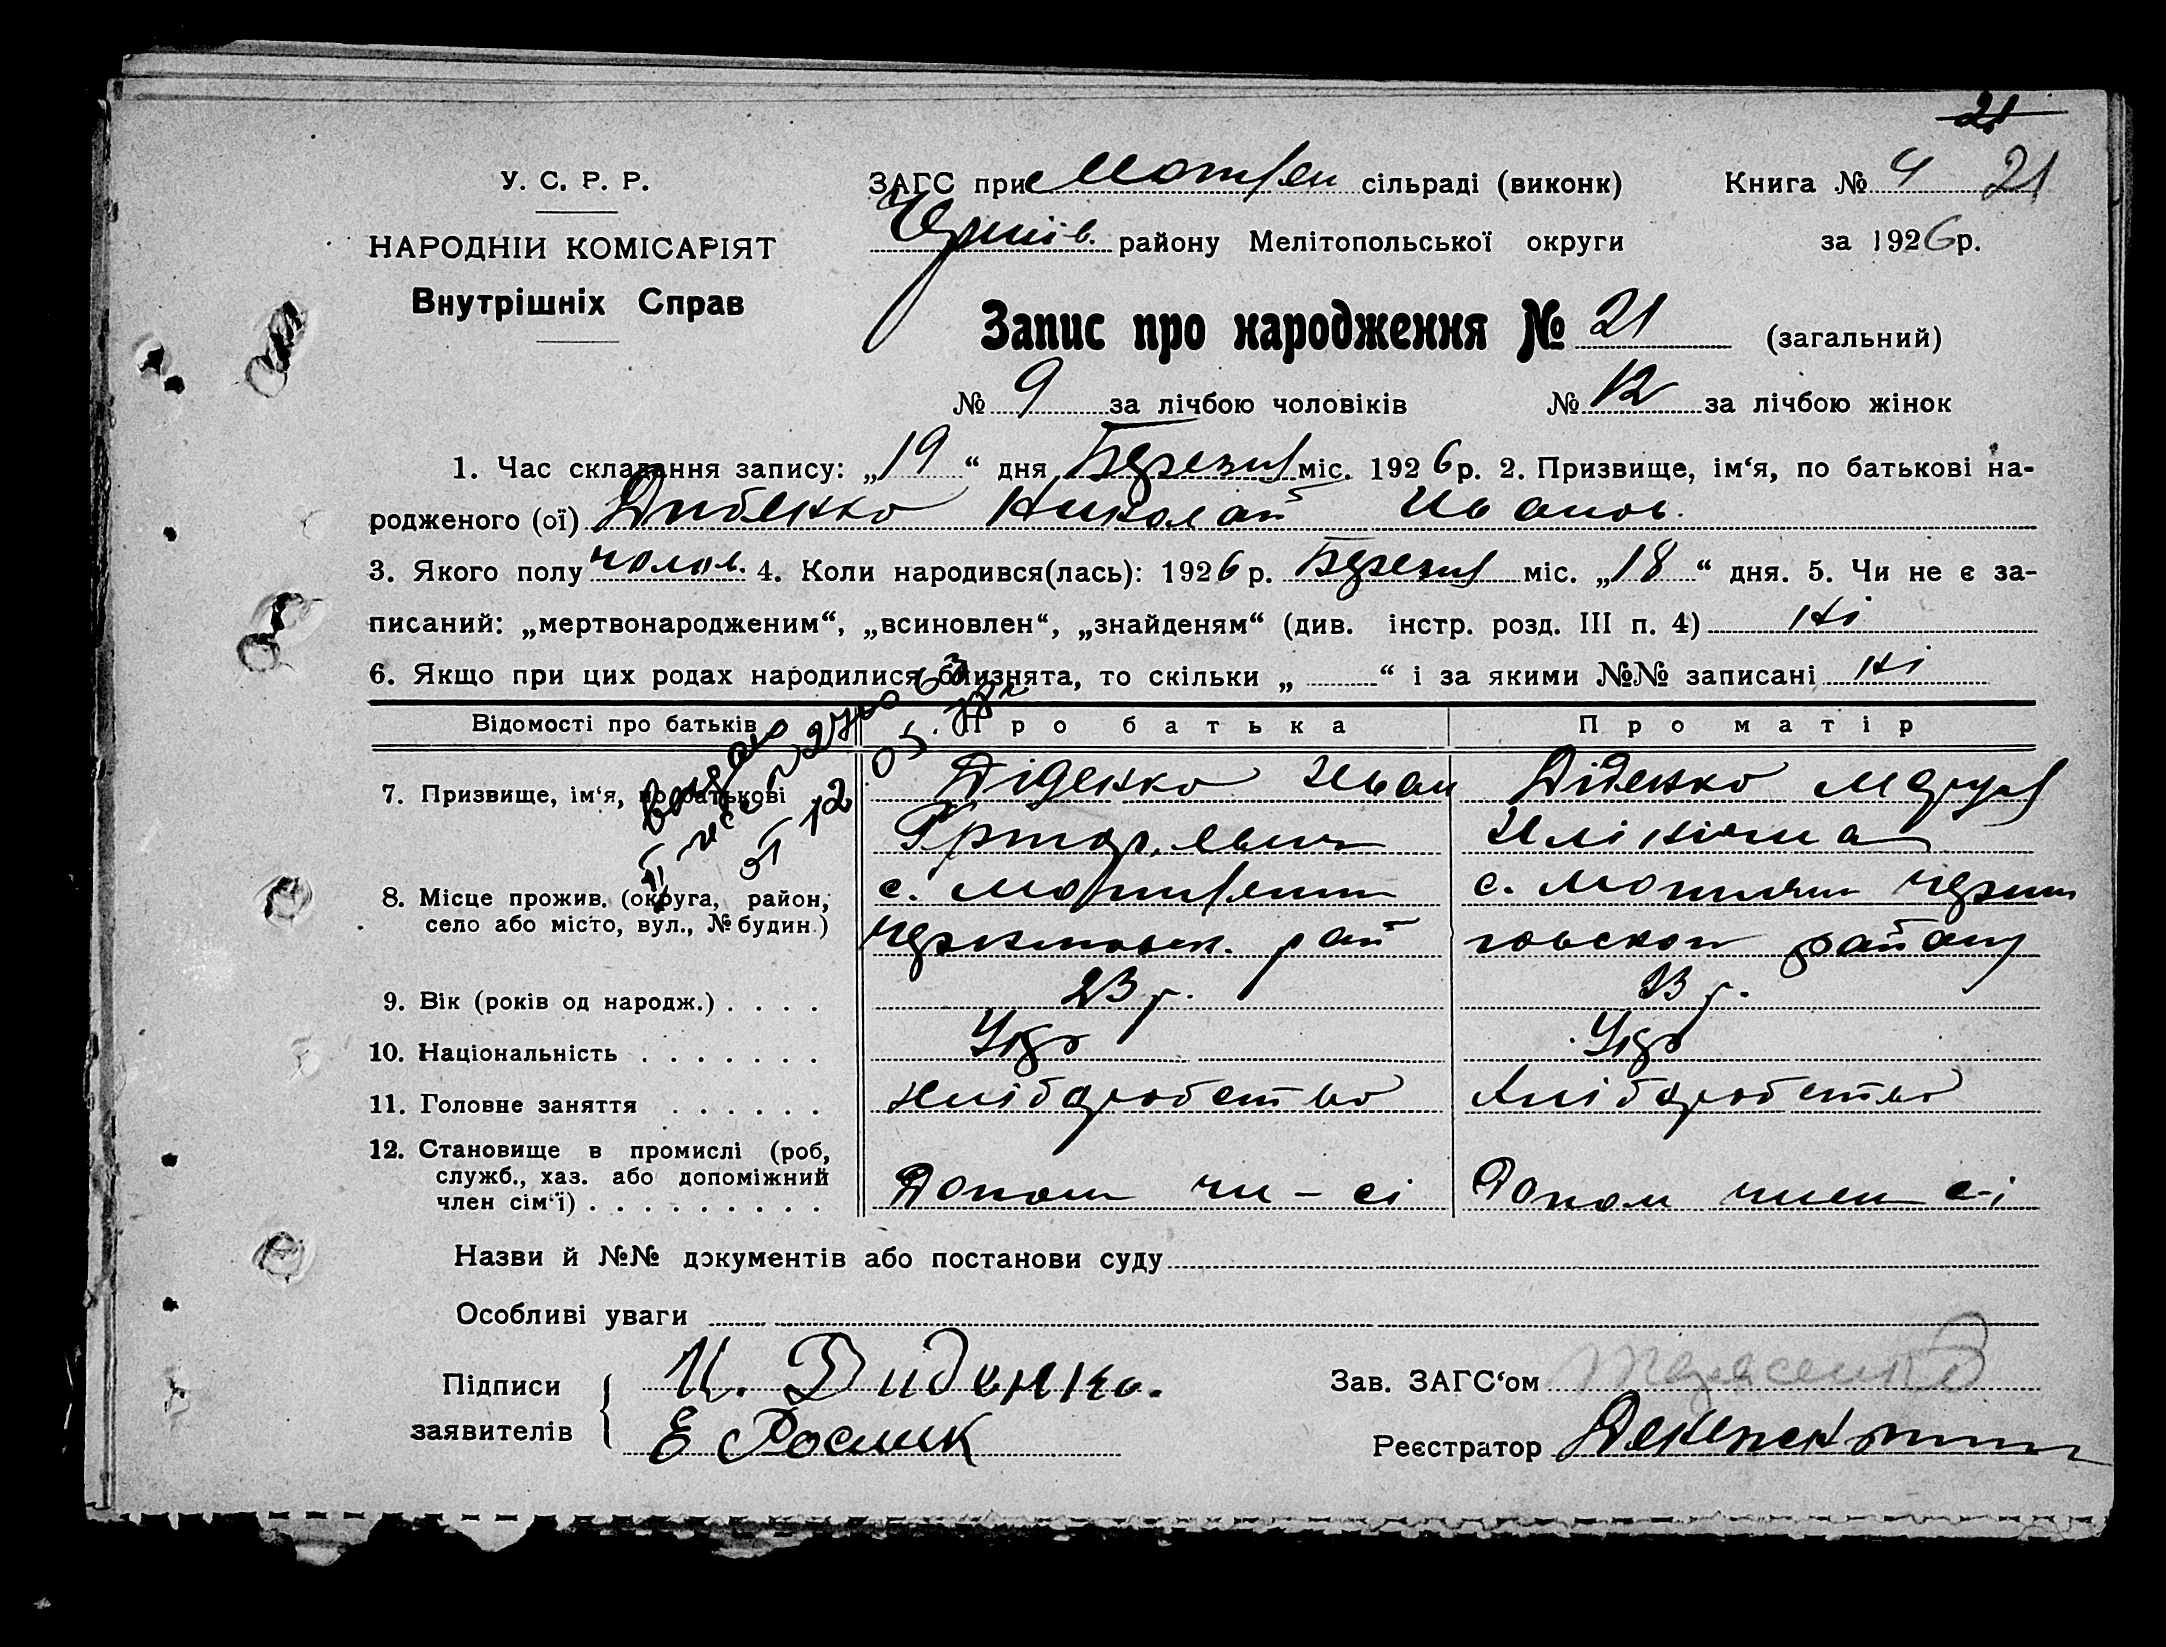 21
У. С. Р. Р.
ЗАГС при сільраді (виконк) Книга № 4 21
НАРОДНІИ КОМІСАРІЯТ
району Мелітопольської округи за 1926р.
Внутрішніх Справ
Запис про народження № 21 (загальний)
№ 9 за лічбою чоловіків № 12 за лічбою жінок
1. Час складання запису: „19“ дня Березня міс. 1926р. 2. Призвище, ім‘я, по батькові на-
родженого (ої) Николай Иванов.
3. Якого полу чолов. 4. Коли народився(лась): 1926р. Березня міс. „18“ дня. 5. Чи не є за-
писаний: „мертвонародженим“, „всиновлен“, „знайденям“ (див. інстр. розд. III п. 4) Ні
6. Якщо при цих родах народилися близнята, то скільки „ “ і за якими №№ записані Ні
Відомості про батьків Про батька Про матір
7. Призвище, ім‘я, по батькові Діденко Иван Діденко
8. Місце прожив. (округа, район, с. с.
село або місто, вул., № будин.) рай району
9. Вік (років од народж.) . . . . 23 г. 23 г.
10. Національність . . . . . . . Укр Укр
11. Головне заняття . . . . . . Хліборобство Хліборобство
12. Становище в промислі (роб,
служб., хаз. або допоміжний
член сім‘ї) . . . . . . . . . Допом чл-сі Допом член с-і
Назви й №№ документів або постанови суду
Особливі уваги
Підписи И. Диденко. Зав. ЗАГС‘ом Тарасенко
заявителів Е Реєстратор